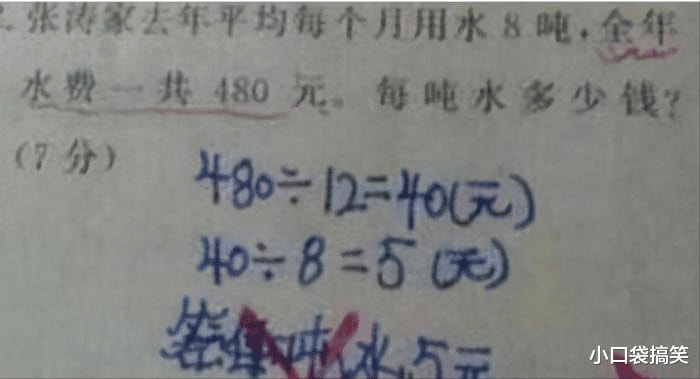 2.张涛家去年平均每个月用水8吨,全年
水费一共480元。每吨水多少钱?
(7分)
480÷12=40(元)
40÷8=5(元)
答:每吨水5元
小口袋搞笑